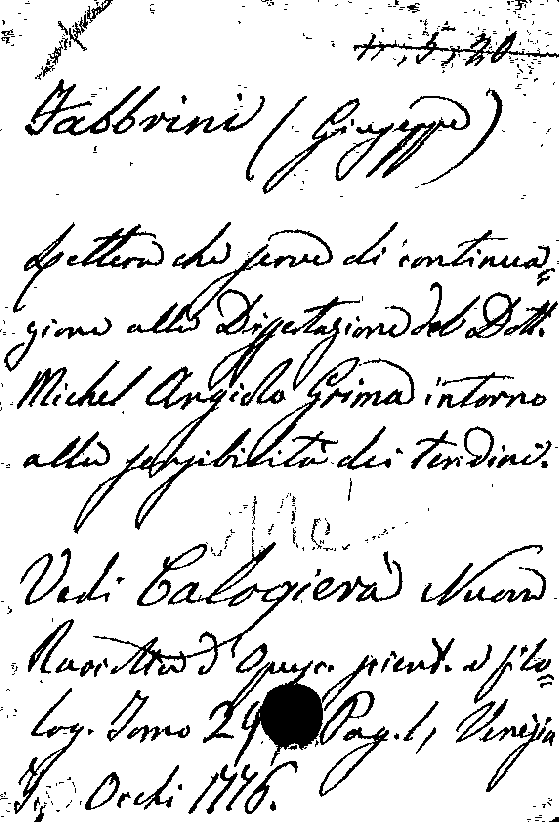 11, 5, 20
Fabbrini (Giuseppe)
Lettera che serve di continua=
zione alla Dissertazione del Dott.
Michel Angiolo Grima intorno
alla sensibilità dei tendini.
Vedi Calogierà Nuova
Raccolta d'Opusc. scient. e filo=
log. Tomo 29 Pag. 1, Venezia
Occhi 1776.